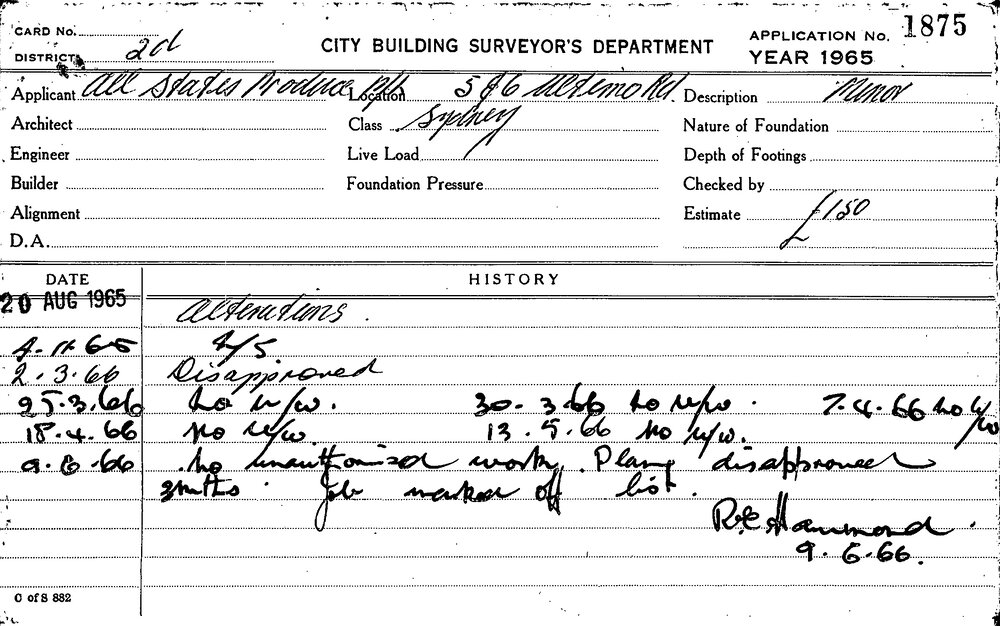 CARD No.
DISTRICT 2d
CITY BUILDING SURVEYOR'S DEPARTMENT
APPLICATION No. 1875
YEAR 1965
Applicant All States Produce P/L Location 5 & 6 Ultimo Rd. Description Minor
Architect Class Sydney Nature of Foundation
Engineer Live Load Depth of Footings
Builder Foundation Pressure Checked by
Alignment Estimate £150
D.A.
DATE HISTORY
20 AUG 1965 Alterations.
4.11.65 N/S.
2.3.66 Disapproved
25.3.66 no u/w. 30.3.66 no u/w. 7.4.66 no u/w
18.4.66 no u/w. 13.5.66 no u/w.
9.6.66 No unauthorised work. Plans disapproved
3mths. Job marked off list.
R.E. Hammond.
9.6.66.
C of S 882